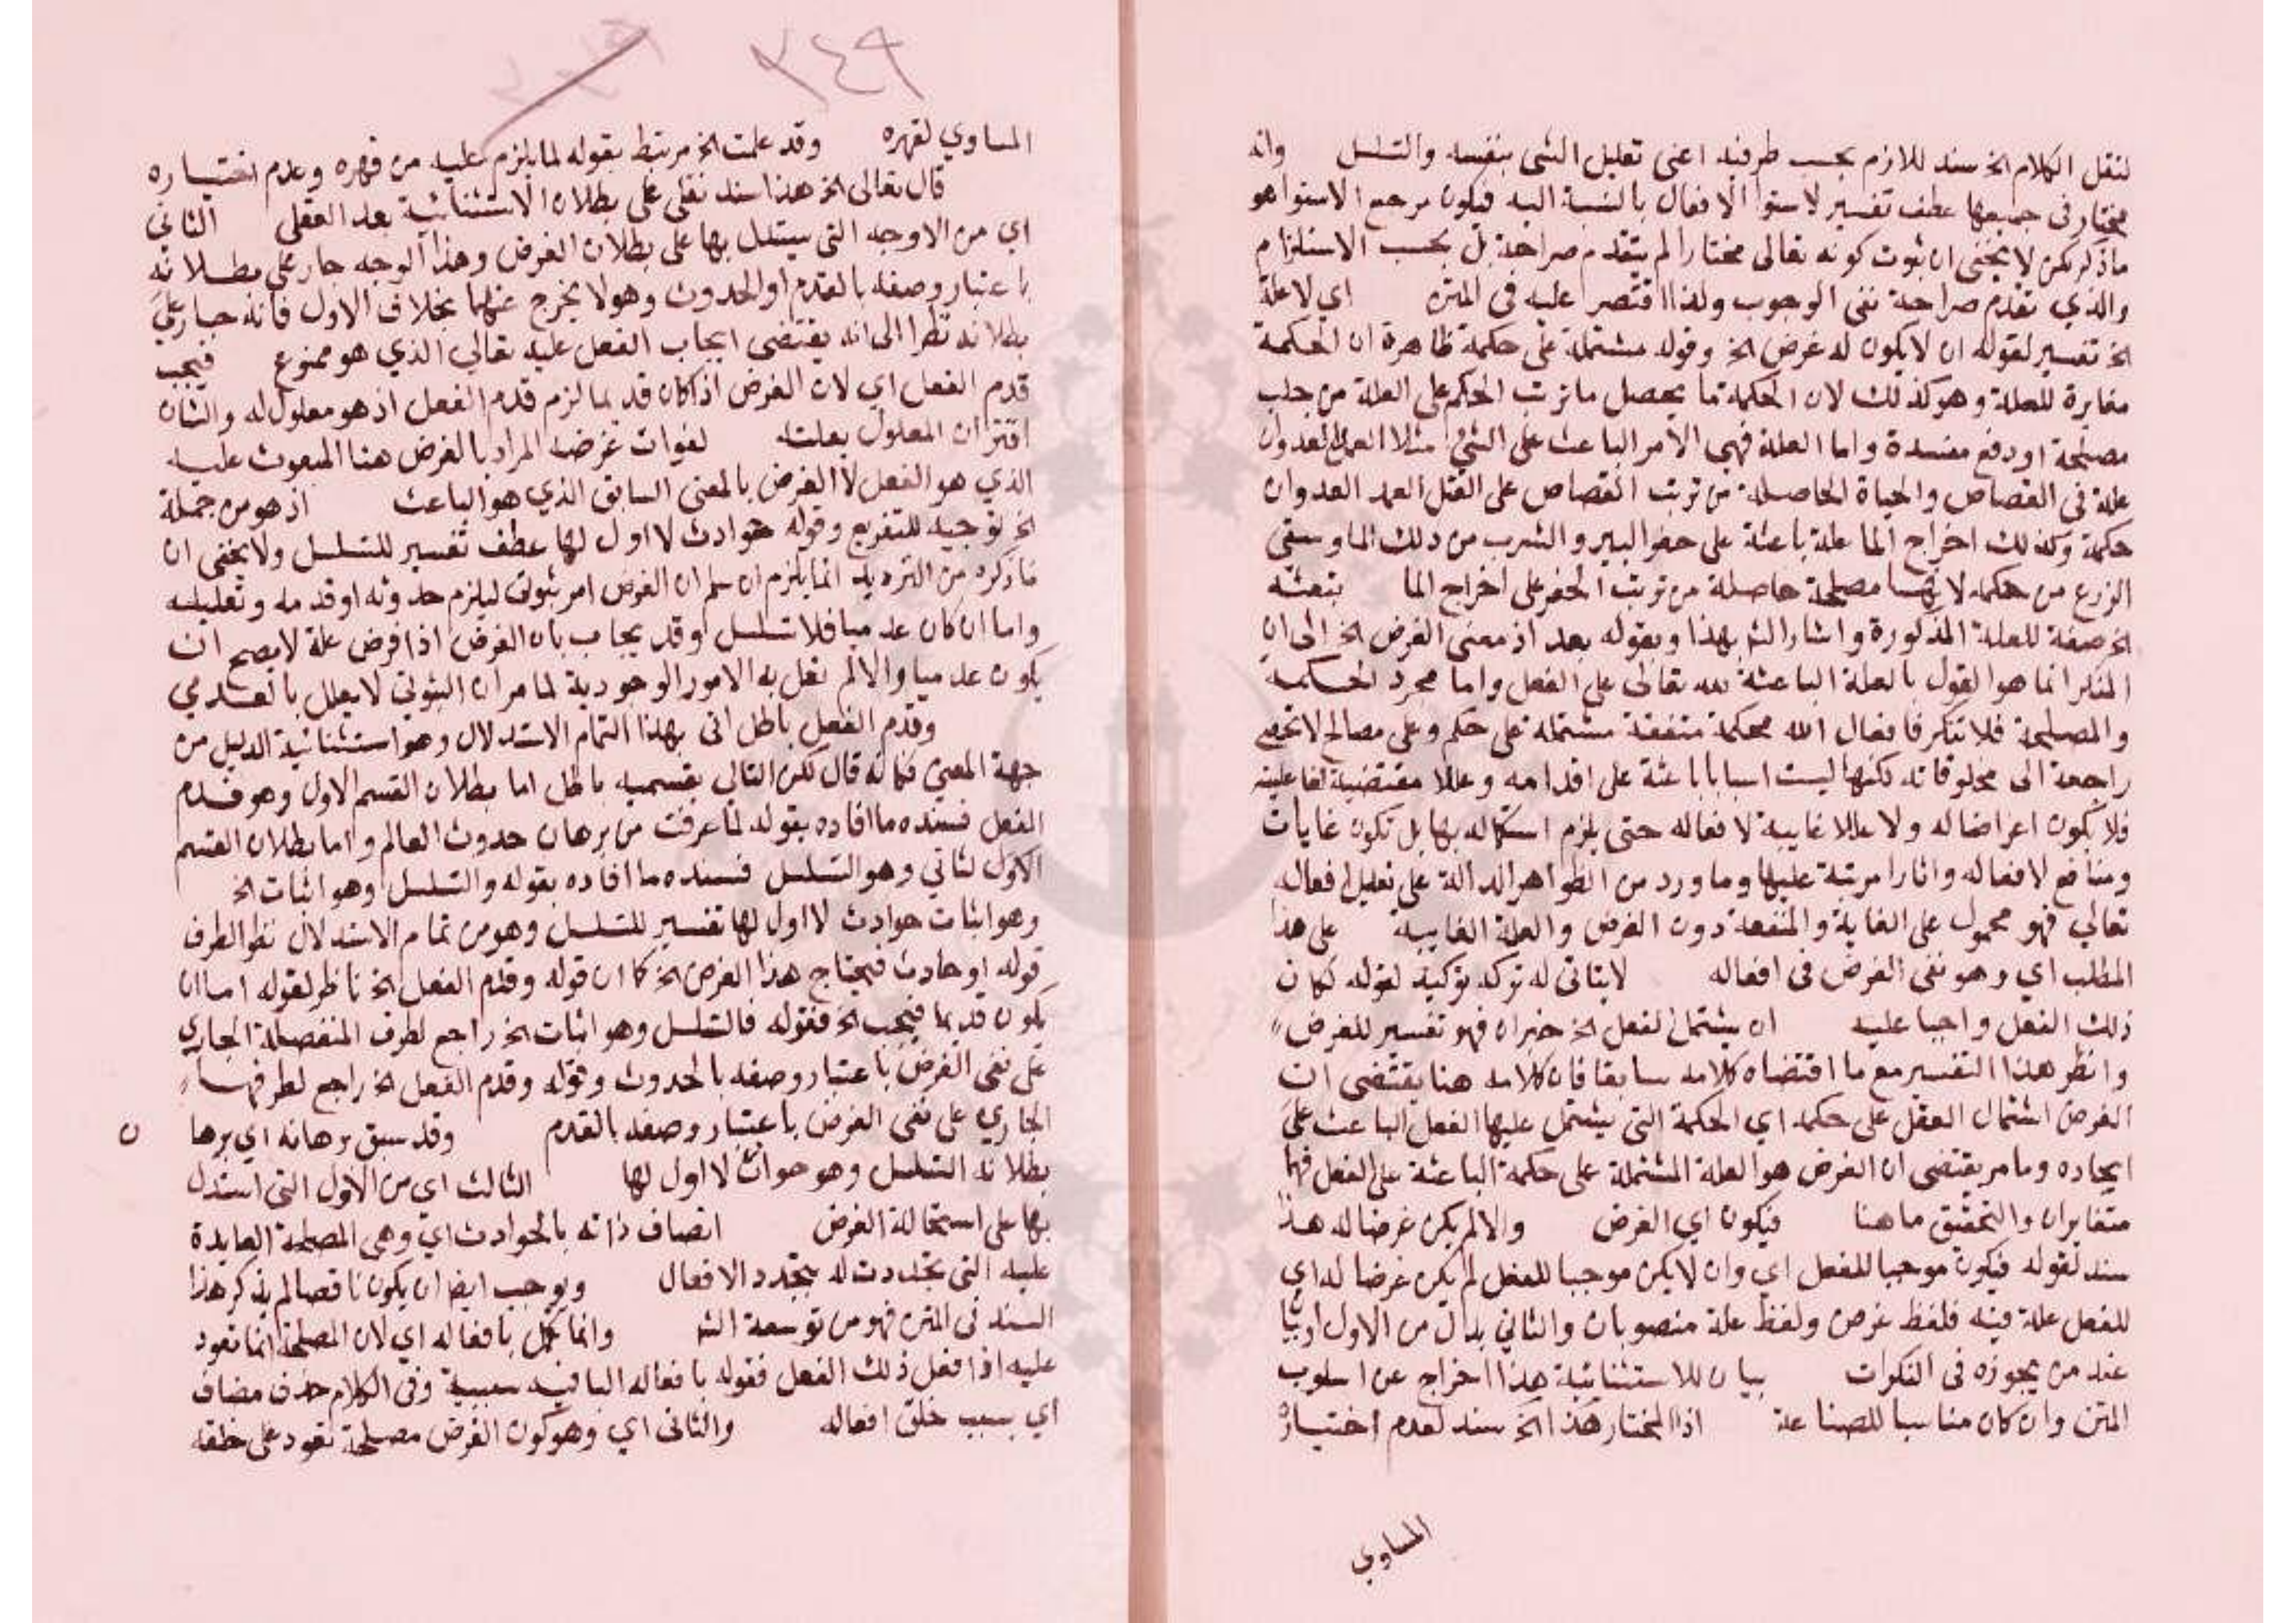 لنقل الكلام الخ سند للازم بحسب طرفيه اعني تعليل الشي بنفسه والتسلسل وانه
مختار في جميعها عطف تفسير لاستوا الافعال بالنسبة اليه فيكون مرجع الاستوا هو
ما ذكر لكن لا يخفى ان ثبوت كونه تعالى مختارا لم يتقدم صراحة بل بحسب الاستلزام
والذي تقدم صراحة نفي الوجوب ولذا اقتصر عليه في المتن اي لا علة
الخ تفسير لقوله ان لا يكون له غرض الخ وقوله مشتملة على حكمة ظاهرة ان الحكمة
مغايرة للعلة وهو كذلك لان الحكمة ما يحصل ما ترتب الحكم على العلة من جلب
مصلحة او دفع مفسدة واما العلة فهي الامر الباعث على الشي مثلا العمد العدوان
علة في القصاص والحياة الحاصلة من ترتب القصاص على القتل العمد العدوان
حكمة وكذلك اخراج الما علة باعثة على حفر البير والشرب من ذلك الما وسقي
الزرع من حكمه لانها مصلحة حاصلة من ترتب الحفر على اخراج الما بتعثه
الخ صفة للعلة المذكورة واشار الش بهذا وبقوله بعد اذ معنى الغرض الخ الى ان
المنكر انما هو القول بالعلة الباعثة لله تعالى على الفعل واما مجرد الحكمة
والمصلحة فلا تنكر فافعال الله محكمة متقنة مشتملة على حكم وعلى مصالح لا تحصى
راجعة الى مخلوقاته لكنها ليست اسبابا باعثة على اقدامه وعللا مقتضية لفاعليته
فلا يكون اعراضا له ولا عللا غايية لافعاله حتى يلزم استكماله بها بل تكون غايات
ومنافع لافعاله واثارا مرتبة عليها وما ورد من الظواهر الدالة على تعليل افعاله
تعالى فهو محمول على الغاية والمنفعة دون الغرض والعلة الغايية على هذا
المطلب اي وهو نفي الغرض في افعاله لا يتاتى له تركه توكيد لقوله لكان
ذلك الفعل واجبا عليه ان يشتمل الفعل الخ خبر ان فهو تفسير للغرض
وانظر هذا التفسير مع ما اقتضاه كلامه سابقا فان كلامه هنا يقتضي ان
الغرض اشتمال العقل على حكمه اي الحكمة التي يشتمل عليها الفعل الباعث على
ايجاده وما مر يقتضي ان الغرض هو العلة المشتملة على حكمة الباعثة على الفعل فهما
متغايران والتحقيق ما هنا فيكون اي الغرض والا لم يكن غرضا له هذا
سند لقوله فيكون موجبا للفعل اي وان لا يكن موجبا للفعل لم يكن غرضا له اي
للفعل علة فيه فلفظ غرض ولفظ علة منصوبان والثاني بدل من الاول
عند من يجوزه في النكرات بيان للاستثنائية هذا اخراج عن اسلوب
المتن وان كان مناسبا للصناعة اذ المختار هذا الخ سند لعدم اختياره
المساوي
٢٤٩
المساوي لقهره وقد علمت الخ مرتبط بقوله لما يلزم عليه من قهره وعدم اختياره
قال تعالى الخ هذا سند نقلي على بطلان الاستثنائية بعد العقلي الثاني
اي من الاوجه التي يستدل بها على بطلان الغرض وهذا الوجه جار على بطلانه
باعتبار وصفه بالقدم او الحدوث وهو لا يخرج عنهما بخلاف الاول فانه جار على
بطلانه نظرا الى انه يقتضي ايجاب الفعل عليه تعالى الذي هو ممنوع فيجب
قدم الفعل اي لان الغرض اذا كان قديما لزم قدم الفعل اذ هو معلول له والشان
اقتران المعلول بعلته لفوات غرضه المراد بالغرض هنا المبعوث عليه
الذي هو الفعل لا الغرض بالمعنى السابق الذي هو الباعث اذ هو من جملة
الخ توجيه للتفريع وقوله حوادث لا اول لها عطف تفسير للتسلسل ولا يخفى ان
ما ذكره من الترديد انما يلزم ان سلم ان الغرض امر ثبوتي ليلزم حدوثه او قدمه وتعليله
واما ان كان عدميا فلا تسلسل وقد يجاب بان الغرض اذا فرض علة لا يصح ان
يكون عدميا والا لم تعلل به الامور الوجودية لما مر ان الثبوتي لا يعلل بالعدمي
وقدم الفعل باطل اتى بهذا التمام الاستدلال وهو استثنائية الدليل من
جهة المعنى فكانه قال لكن التالي بقسميه باطل اما بطلان القسم الاول وهو قدم
الفعل فسنده ما افاده بقوله لما عرفت من برهان حدوث العالم واما بطلان القسم
الاول لثاني وهو التسلسل فسنده ما افاده بقوله والتسلسل وهو اثبات الخ
وهو اثبات حوادث لا اول لها تفسير للتسلسل وهو من تمام الاستدلال نظرا لطرف
قوله او حادث فيحتاج هذا الغرض الخ كما ان قوله وقدم الفعل الخ ناظر لقوله اما ان
يكون قديما فيجب الخ فقوله فالتسلسل وهو اثبات الخ راجع لطرف المنفصلة الجاري
على نفي الغرض باعتبار وصفه بالحدوث وقوله وقدم الفعل الخ راجع لطرفها
الجاري على نفي الغرض باعتبار وصفه بالقدم وقد سبق برهانه اي برها ن
بطلانه التسلسل وهو حوادث لا اول لها الثالث اي من الاول التي استدل
بها على استحالة الغرض اتصاف ذاته بالحوادث اي وهي المصلحة العايدة
عليه التي تجددت له بتجدد الافعال ويوجب ايضا ان يكون ناقصا لم يذكر هذا
السند في المتن فهو من توسعة الش وانما كمل بافعاله اي لان المصلحة انما تعود
عليه اذا فعل ذلك الفعل فقوله بافعاله البا فيه سببية وفي الكلام حذف مضاف
اي بسبب خلق افعاله والثاني اي وهو كون الغرض مصلحة تعود على خلقه